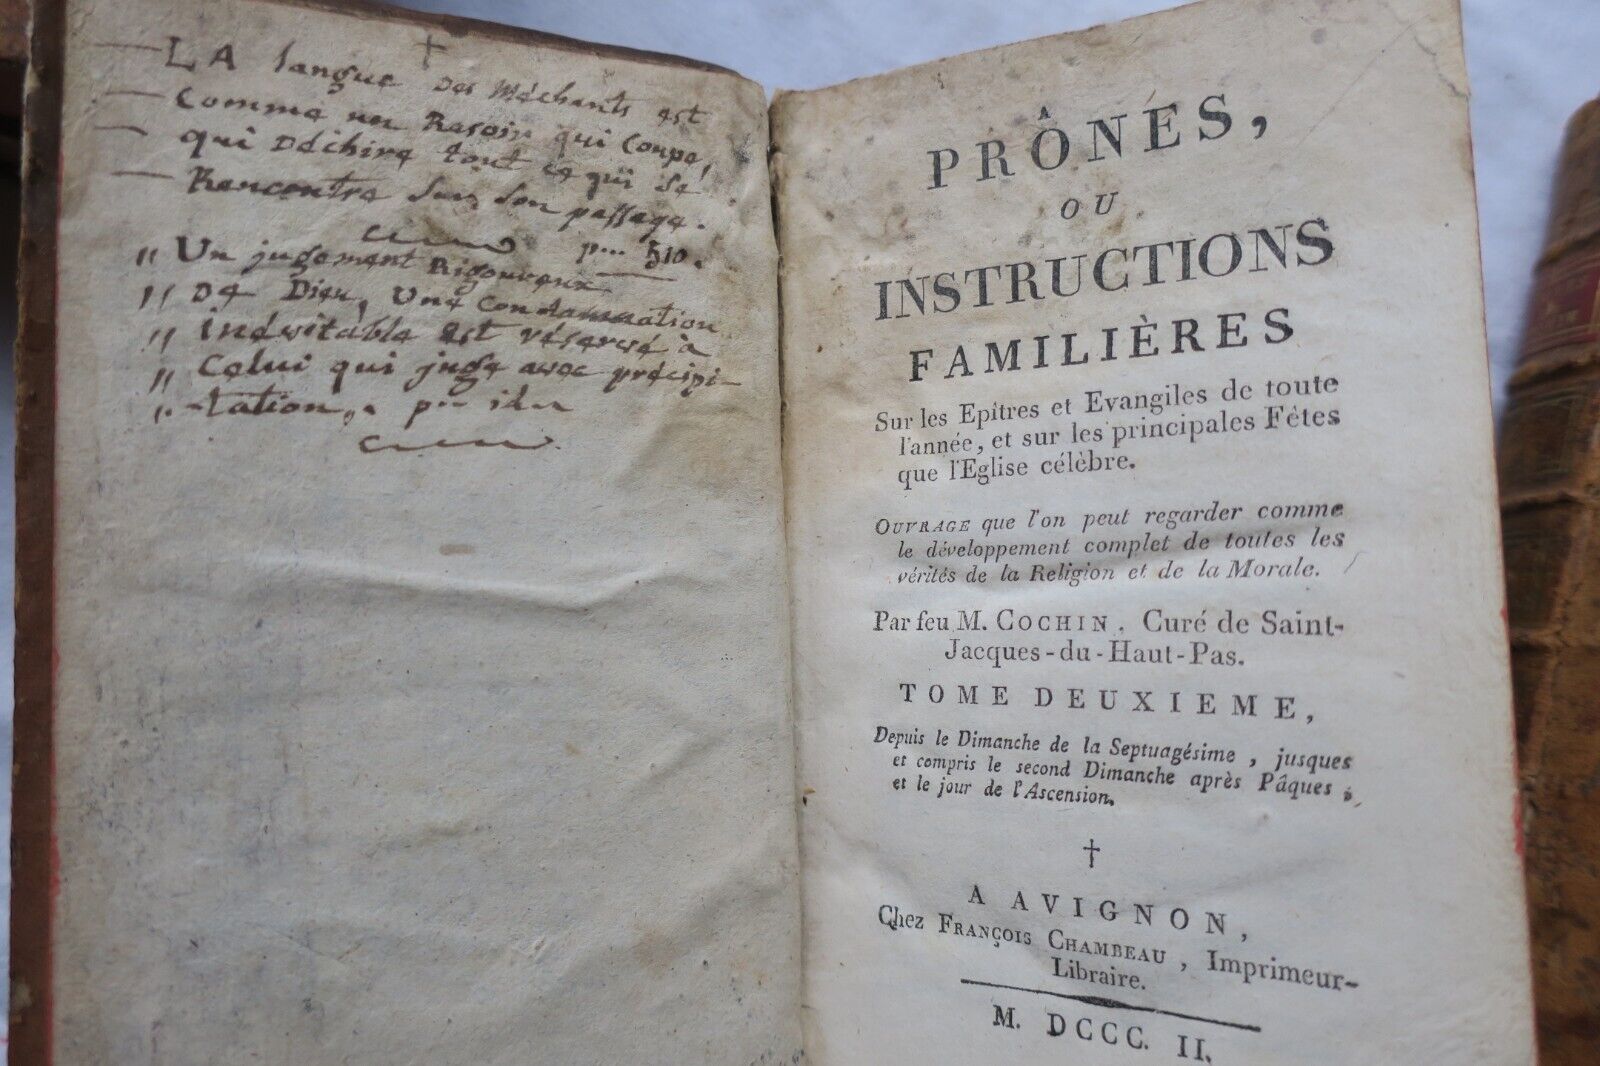 †
— LA langue Des Méchants est
— Comme un Rasoir qui Coupe,
— qui Déchire tout ce qui se
— Rencontre sur son passage.
p... 510.
" Un jugement Rigoureux
" De Dieu, Une Condamnation
" inévitable est réservé à
" Celui qui juge avec précipi-
" -tation,. p... idem
PRÔNES,
OU
INSTRUCTIONS
FAMILIÈRES
Sur les Epîtres et Evangiles de toute
l'année, et sur les principales Fêtes
que l'Eglise célèbre.
OUVRAGE que l'on peut regarder comme
le développement complet de toutes les
vérités de la Religion et de la Morale.
Par feu M. COCHIN, Curé de Saint-
Jacques-du-Haut-Pas.
TOME DEUXIEME,
Depuis le Dimanche de la Septuagésime, jusques
et compris le second Dimanche après Pâques,
et le jour de l'Ascension.
†
A AVIGNON,
Chez FRANÇOIS CHAMBEAU, Imprimeur-
Libraire.
M. DCCC. II.